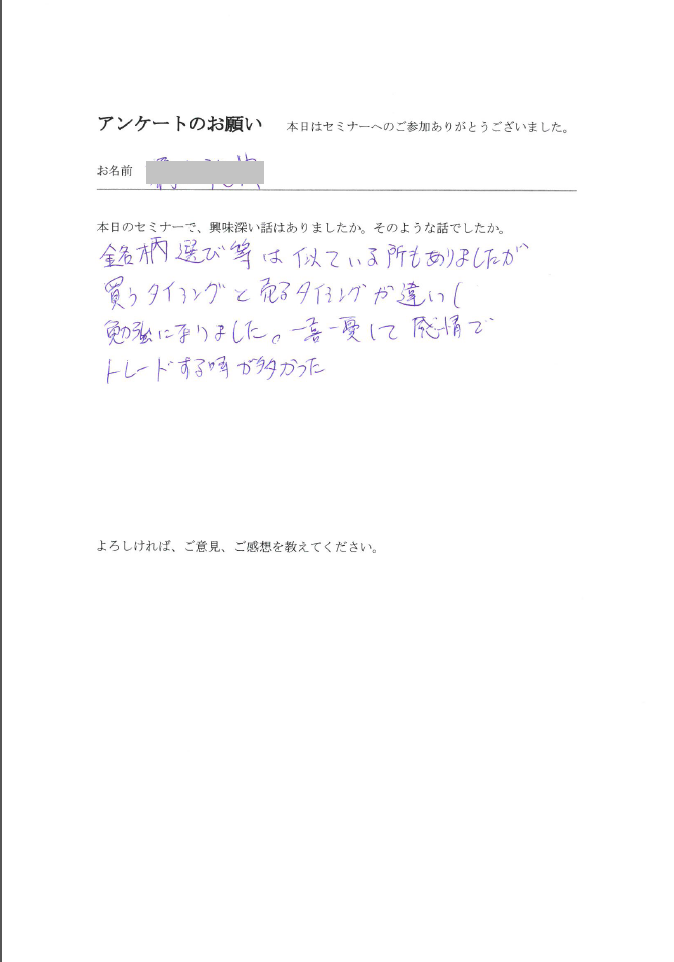 アンケートのお願い 本日はセミナーへのご参加ありがとうございました。
お名前
本日のセミナーで、興味深い話はありましたか。そのような話でしたか。
銘柄選び等は似ている所もありましたが
買うタイミングと売るタイミングが違いし
勉強になりました。一喜一憂して感情で
トレードする時が多かった
よろしければ、ご意見、ご感想を教えてください。